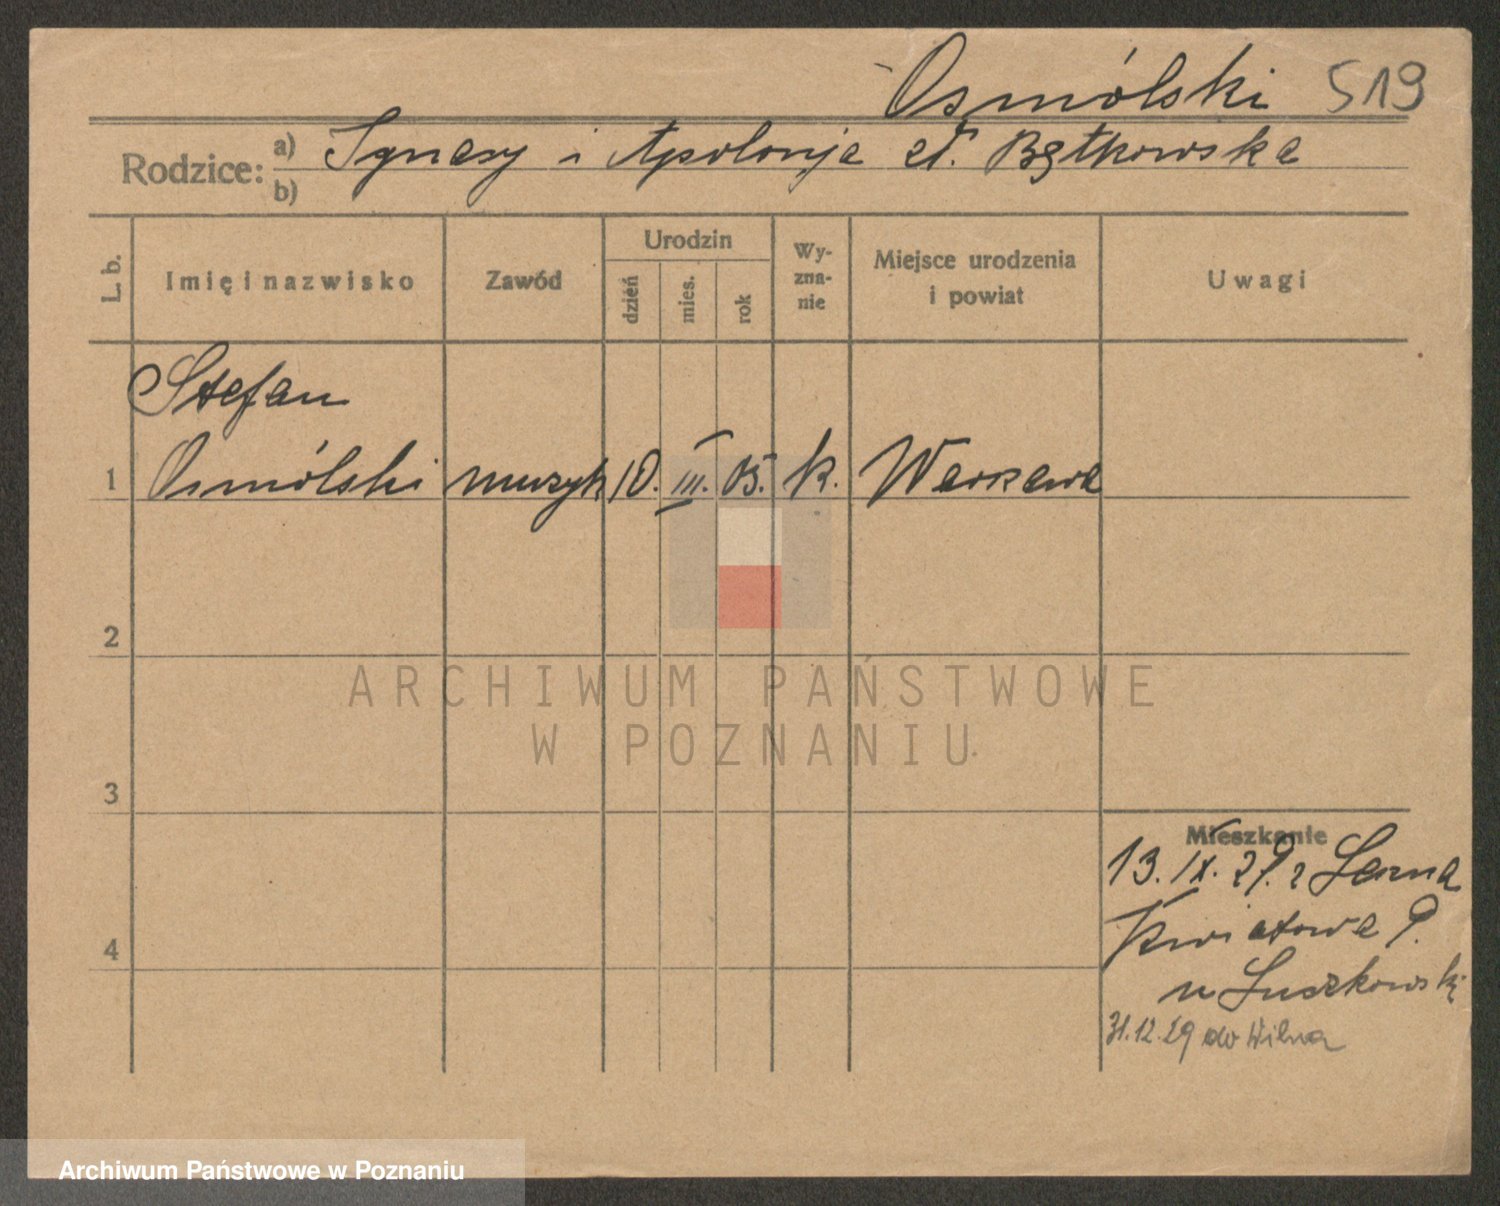 Osmólski 519
Rodzice: a) Ignacy i Apolonja
b)
L. b. Imię i nazwisko Zawód Urodzin dzień mies. rok Wyzna-nie Miejsce urodzenia i powiat Uwagi
Stefan
1 Osmólski muzyk 10. III. 05. k. Warszawa
2
ARCHIWUM PAŃSTWOWE
W POZNANIU
3
Mieszkanie
13. IX. 29. z
Kwiatowa 9.
4
u
31.12.29 do Wilna
Archiwum Państwowe w Poznaniu